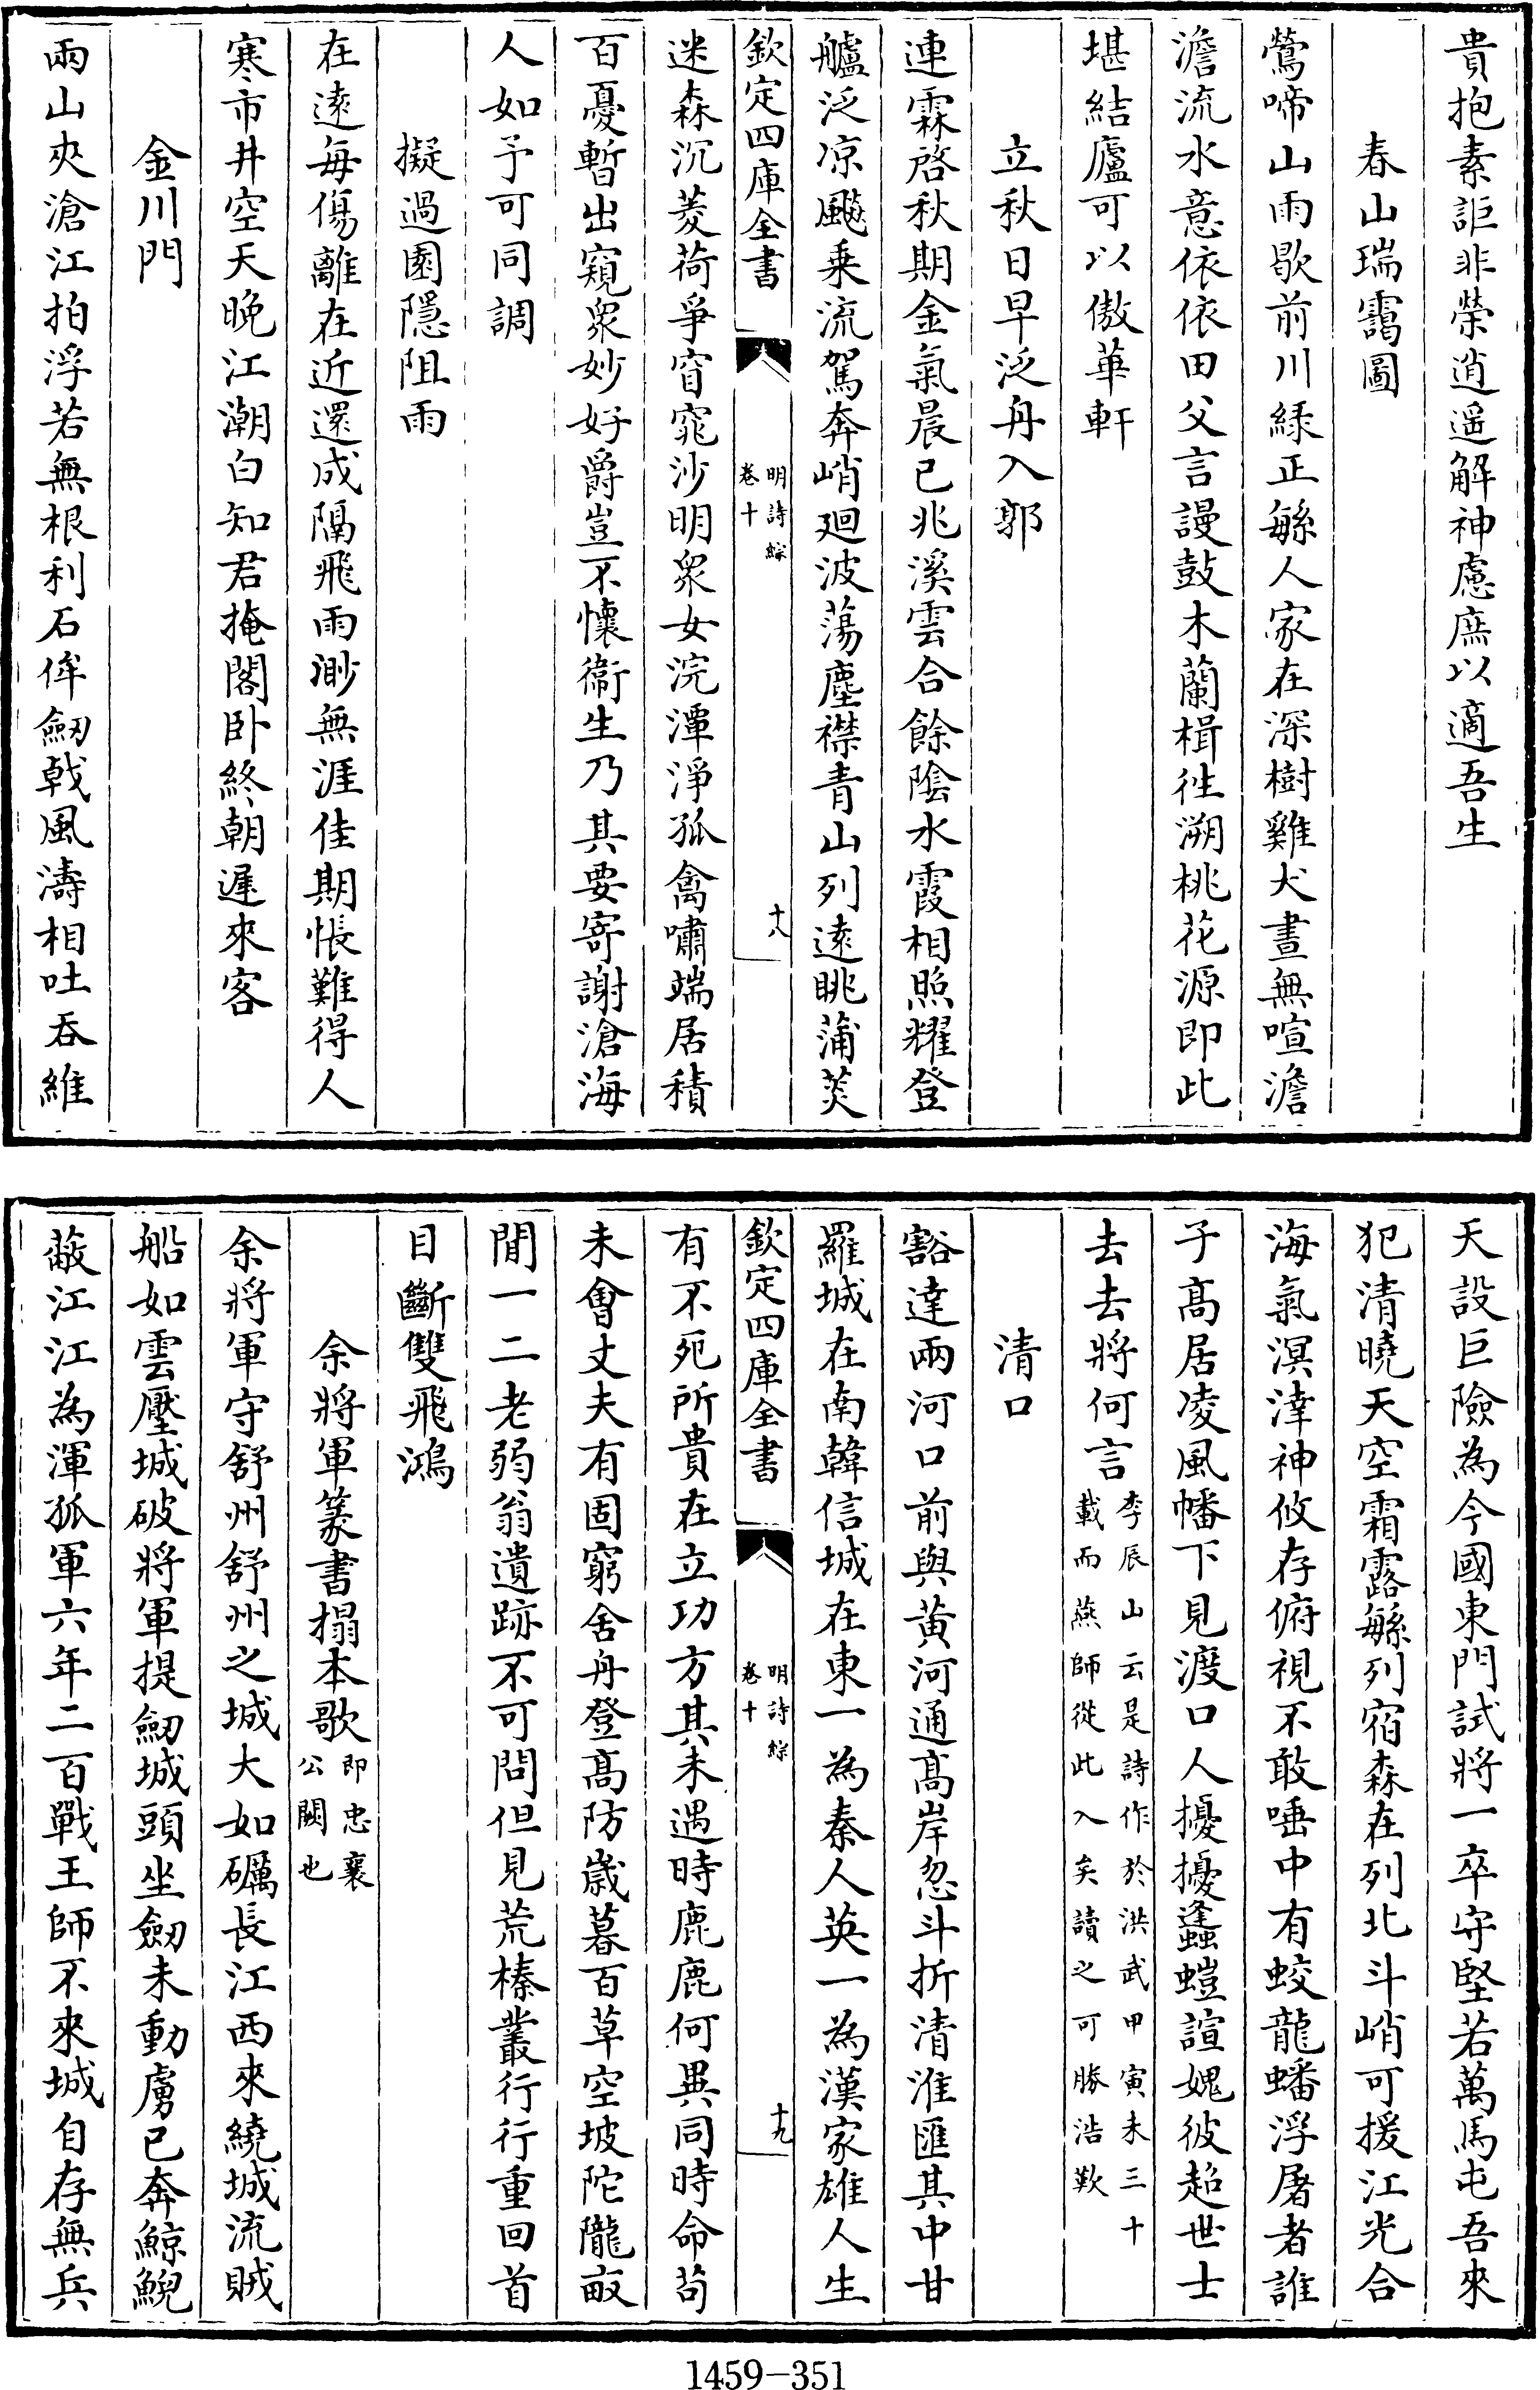 貴抱素詎非榮逍遥解神慮庶以適吾生
春山瑞靄圖
鶯啼山雨歇前川緑正緐人家在深樹雞犬晝無喧澹
澹流水意依依田父言謾鼓木蘭楫徃溯桃花源即此
堪結廬可以傲華軒
立秋日早泛舟入郭
連霖啓秋期金氣晨已兆溪雲合餘陰水霞相照耀登
艫泛凉飈乗流駕奔峭廻波蕩塵襟青山列遠眺蒲茨
欽定四庫全書
明詩綜
卷十
十八
迷森沉菱荷爭窅窕沙明衆女浣潭淨孤禽嘯端居積
百憂暫出窺衆妙好爵豈不懐衛生乃其要寄謝滄海
人如予可同調
擬過園隱阻雨
在遠每傷離在近還成隔飛雨渺無涯佳期悵難得人
寒市井空天晚江潮白知君掩閣卧終朝遲來客
金川門
兩山夾滄江拍浮若無根利石侔劒戟風濤相吐吞維
天設巨險為今國東門試將一卒守堅若萬馬屯吾來
犯清曉天空霜露緐列宿森在列北斗峭可援江光合
海氣溟涬神攸存俯視不敢唾中有蛟龍蟠浮屠者誰
子髙居凌風幡下見渡口人擾擾蠭螘諠媿彼超世士
去去將何言
李辰山云是詩作於洪武甲寅未三十
載而燕師從此入矣讀之可勝浩歎
清口
豁達兩河口前與黄河通髙岸忽斗折清淮匯其中甘
羅城在南韓信城在東一為秦人英一為漢家雄人生
欽定四庫全書
明詩綜
卷十
十九
有不死所貴在立功方其未遇時鹿鹿何異同時命苟
未㑹丈夫有固窮舍舟登髙防歲暮百草空坡陀隴畝
間一二老弱翁遺跡不可問但見荒榛叢行行重回首
目斷雙飛鴻
余將軍篆書搨本歌
即忠襄
公闕也
余將軍守舒州舒州之城大如礪長江西來繞城流賊
船如雲壓城破將軍提劒城頭坐劒未動虜已奔鯨鯢
蔽江江為渾孤軍六年二百戰王師不來城自存無兵
1459-351